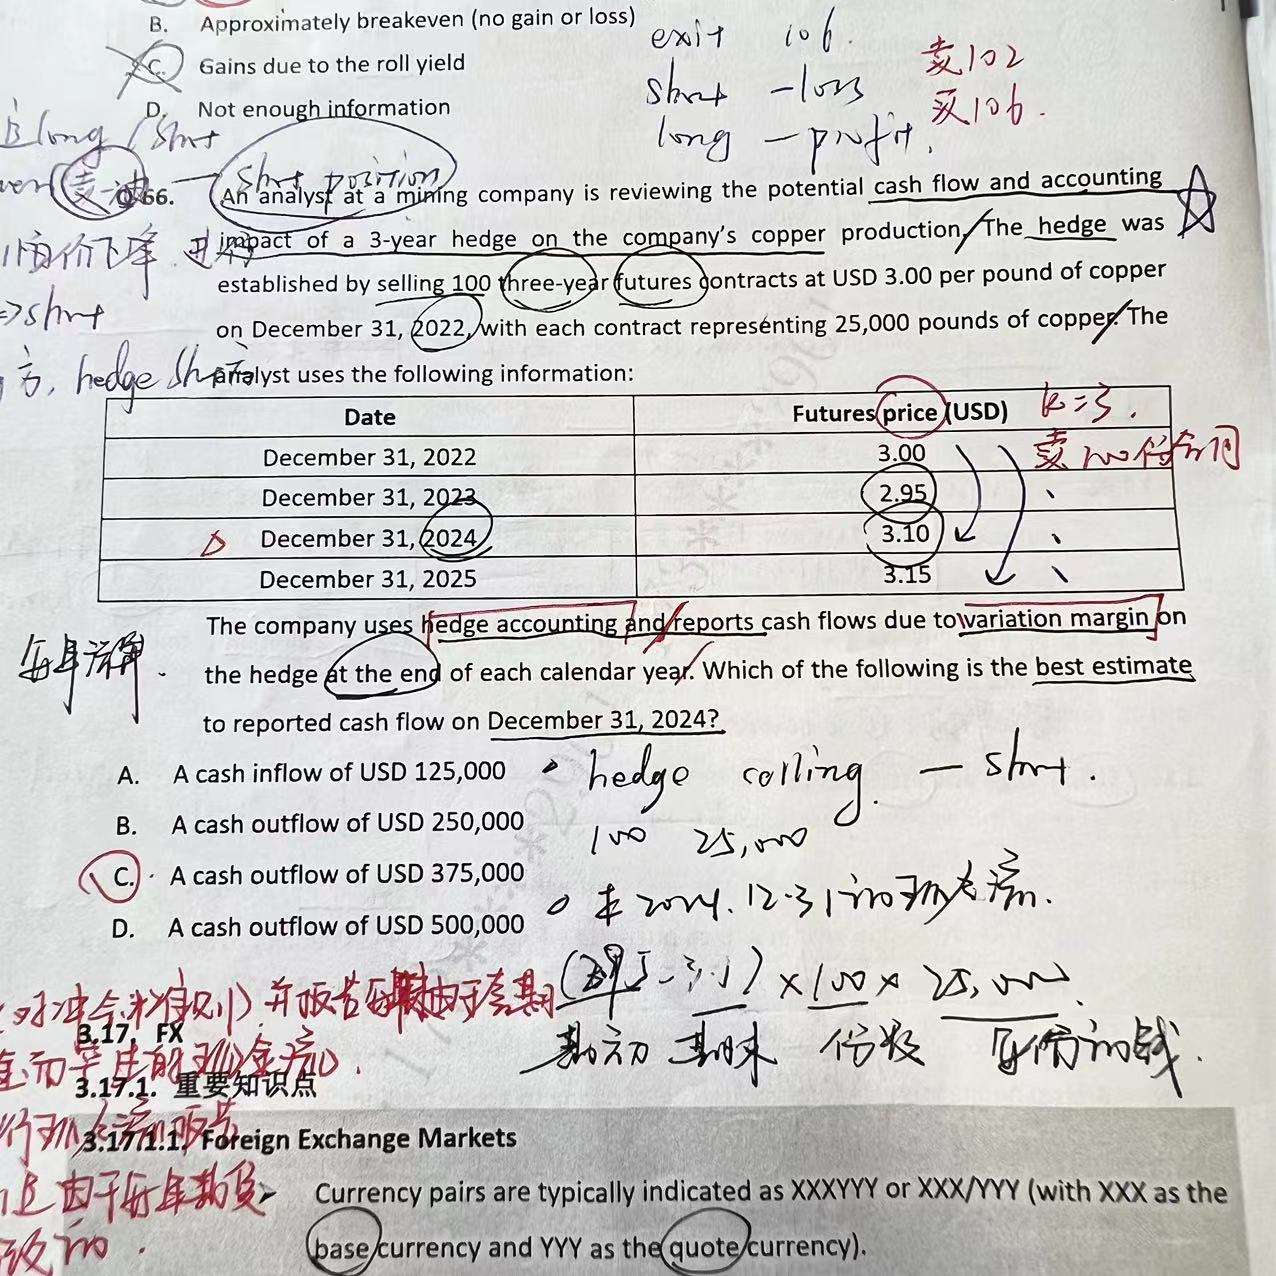 B. Approximately breakeven (no gain or loss)
exit 106.
C. Gains due to the roll yield
卖102
short -loss
D. Not enough information
买106.
long -profit.
long / short
short position
Q66. An analyst at a mining company is reviewing the potential cash flow and accounting
impact of a 3-year hedge on the company's copper production. The hedge was
established by selling 100 three-year futures contracts at USD 3.00 per pound of copper
=> short
on December 31, 2022, with each contract representing 25,000 pounds of copper. The
hedge short
analyst uses the following information:
Date Futures price (USD) k=3.
December 31, 2022 3.00 卖100份合同
December 31, 2023 2.95
December 31, 2024 3.10
December 31, 2025 3.15
The company uses hedge accounting and reports cash flows due to variation margin on
每年
the hedge at the end of each calendar year. Which of the following is the best estimate
to reported cash flow on December 31, 2024?
A. A cash inflow of USD 125,000
hedge – short.
B. A cash outflow of USD 250,000
100 25,000
C. A cash outflow of USD 375,000
D. A cash outflow of USD 500,000
3.1) × 100 × 25,000
期初 期末 份数
3.17. FX
3.17.1. 重要知识点
3.17.1.1. Foreign Exchange Markets
➢ Currency pairs are typically indicated as XXXYYY or XXX/YYY (with XXX as the
base currency and YYY as the quote currency).